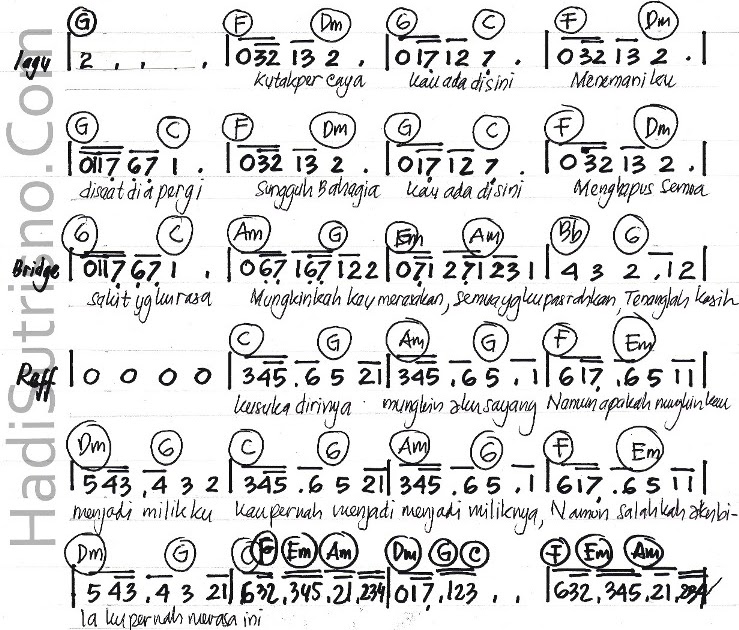 HadiSutrisno.Com
G F Dm G C F Dm
lagu | 2 . . . | 032 13 2 . | 017 12 7 . | 032 13 2 . |
kutakper caya kau ada disini Menemaniku
G C F Dm G C F Dm
| 0117 67 1 . | 032 13 2 . | 017 12 7 . | 032 13 2 . |
disaat dia pergi Sungguh Bahagia kau ada disini Menghapus Semua
G C Am G Em Am Bb G
Bridge | 0117 67 1 . | 067 167 122 | 071 271 231 | 4 3 2 .12 |
sakit yg kurasa Mungkinkah kau merasakan, semua yg ku pasrahkan, Tenanglah kasih
C G Am G F Em
Reff | 0 0 0 0 | 345 .6 5 21 | 345 .6 5 .1 | 617 .6 5 11 |
kusuka dirinya mungkin aku sayang Namun apakah mungkin kau
Dm G C G Am G F Em
| 5 43 .4 3 2 | 345 .6 5 21 | 345 .6 5 .1 | 617 .6 5 11 |
menjadi milikku kau pernah menjadi menjadi miliknya, Namun salahkah aku bi-
Dm G C F Em Am Dm G C F Em Am
| 5 43 .4 3 21 | 632 .345 .21 .234 | 017 .123 . . | 632 .345 .21 .234
la ku pernah merasa ini